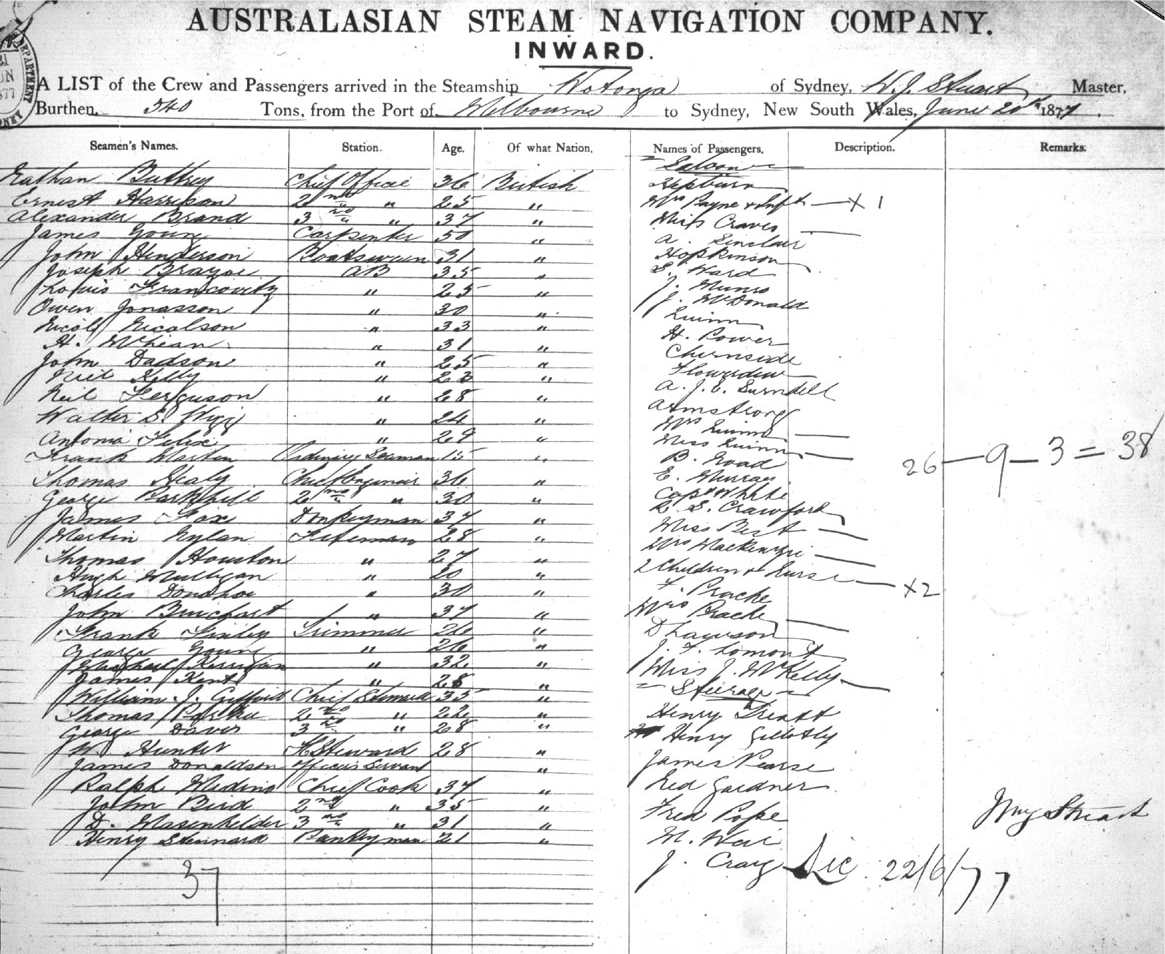 AUSTRALASIAN STEAM NAVIGATION COMPANY.
INWARD.
A LIST of the Crew and Passengers arrived in the Steamship Wotonga of Sydney, W. J. Stuart Master,
Burthen, 540 Tons, from the Port of Melbourne to Sydney, New South Wales, June 20th 1877.
Seamen's Names. Station. Age. Of what Nation, Names of Passengers, Description. Remarks.
Saloon
Nathan Buttrey Chief Officer 36 British Hepburn
Ernest Harrison 2nd " 25 " Mrs Payne & Inft — X 1
Alexander Brand 3rd " 37 " Miss Craves —
James Young Carpenter 50 " A. Sinclair
John Henderson Boatswain 31 " Hopkinson
Joseph AB 35 " S. Ward
Louis " 25 " J. Munro
Owen Jonasson " 30 " J. McDonald
Nicolson " 33 " Quinn
H. " 31 " H. Power
John Dadson " 25 " Chernside
Neil Kelly " 23 "
Neil Ferguson " 28 " A. J. E.
Walter S. " 24 " Armstrong
Antonio Felix " 29 " Mrs Quinn —
Frank Martin Ordinary Seaman 15 " Miss Quinn —
B. Goad
26 — 9 — 3 = 38
Thomas Healy Chief Engineer 36 " E. Murray
George 2nd " 30 " Capt White
James Fox Donkeyman 37 " R. S. Crawford
Martin Nylan Fireman 28 " Miss Best —
Thomas Houston " 27 " Mrs Mackenzie —
Hugh Mulligan " 20 " 2 Children & Nurse — X2
Charles Donohoe " 30 " F. Prache
John " 37 " Mrs Prache —
Frank Finley Trimmer 26 " D Lawson
George Young " 26 " J. F. Lomont
Michael Kerrigan " 32 " Miss J. McKelly —
James Kent " 28 " Steerage
William J. Chief Steward 35 "
Thomas Parker 2nd " 22 " Henry Treatt
George Daves 3rd " 28 " Henry
W Hunter Steward 28 "
James Donaldson Officers Servant " James Pearse
Ralph Medina Chief Cook 37 " Ned Gardner
John Bird 2nd " 35 " Fred Pope
D. 3rd " 31 "
Henry Stennard Pantryman 21 " N. Weir
J. Cray
Wm J Stuart
37
22/6/77